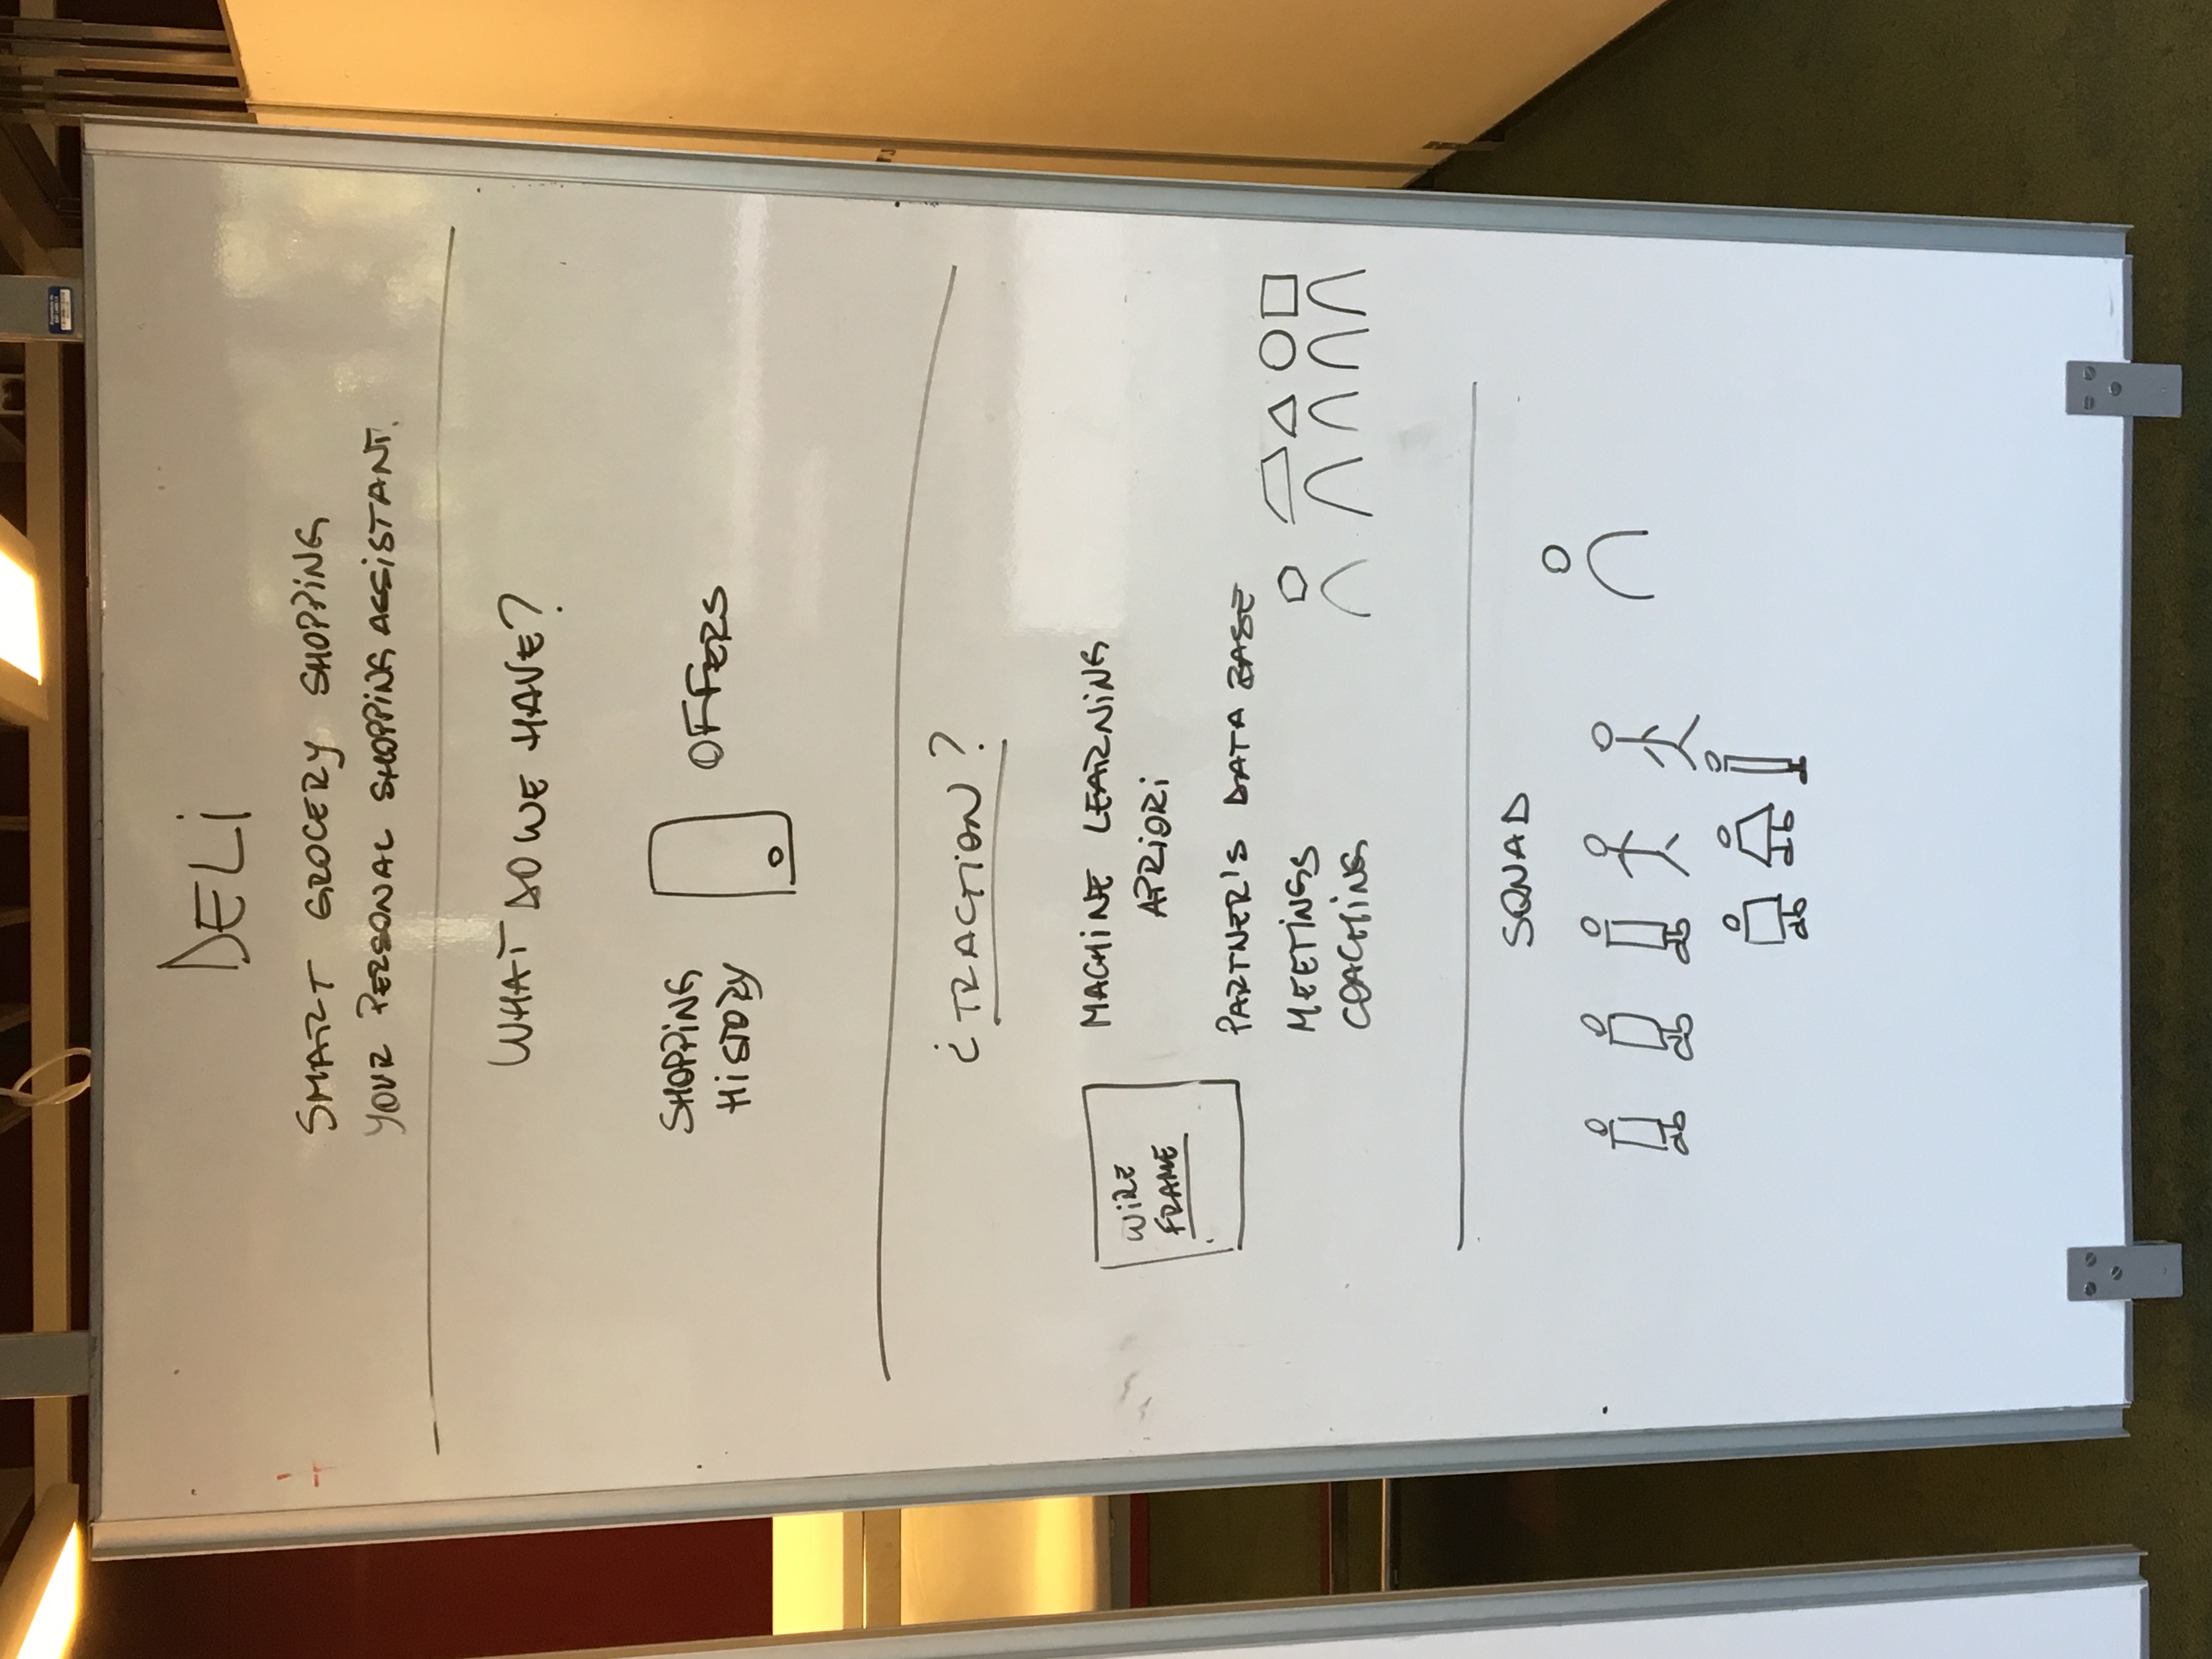 DELi
SMART GROCERY SHOPPiNG
YOUR PERSONAL SHOPPiNG ASSiSTANT.
WHAT DO WE HAVE?
SHOPPiNG
HiSTORY
OFFERS
¿TRACTiON?
WiRE
FRAME
MACHiNE LEARNiNG
APRiORi
PARTNER'S DATA BASE
MEETiNGS
COACHiNG
SQUAD